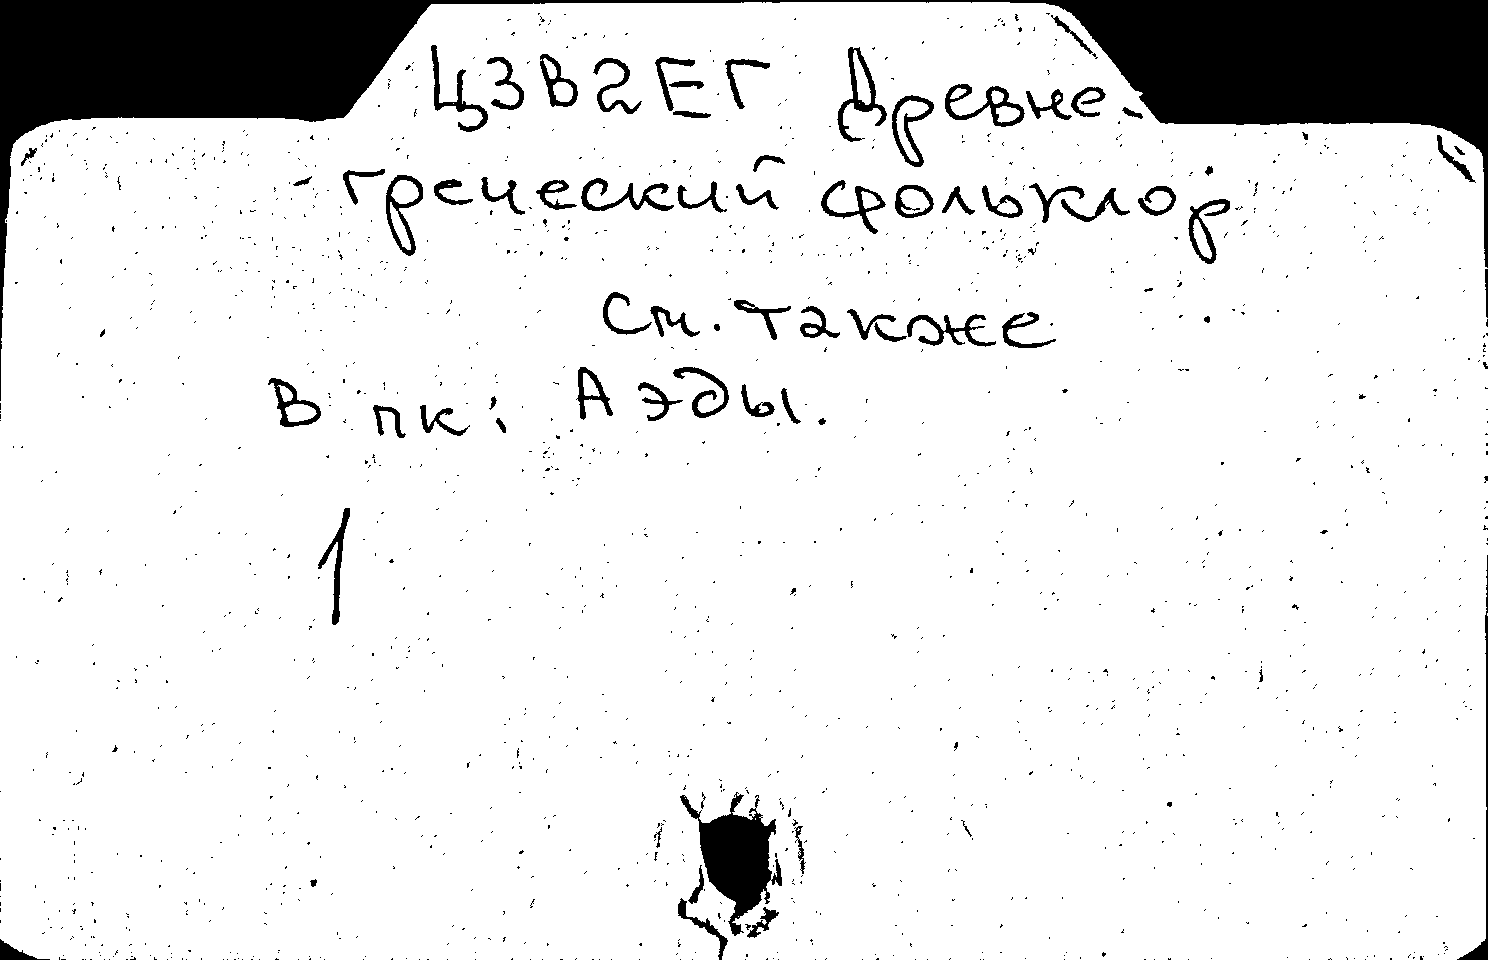 ЦЗВ2ЕГ Древне-
-греческий фольклор
См. также
В пк: Аэды.
1